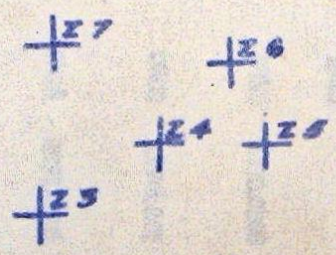 Z7
Z6
Z4
Z5
Z3